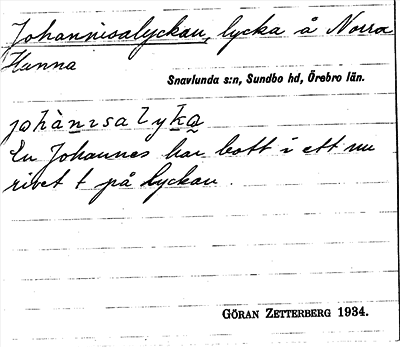 Johannisalyckan, lycka å Norra
Hanna
Snavlunda s:n, Sundbo hd, Örebro län.
johànısalyka
En Johannes har bott i ett nu
rivet t på lyckan.
GÖRAN ZETTERBERG 1934.